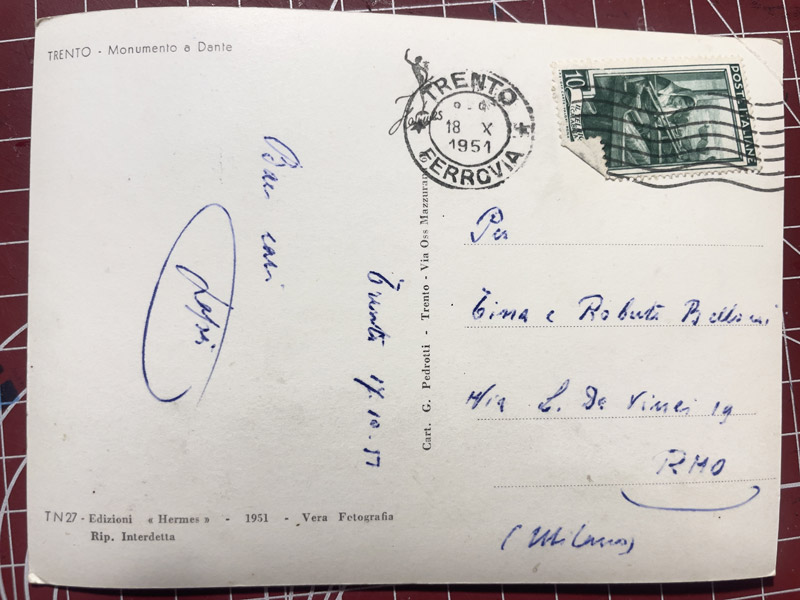 TRENTO - Monumento a Dante
TRENTO
18 X
1951
FERROVIA
10
POSTE ITALIANE
Per
Tina e Roberto Belloni
Via L. Da Vinci 19
RHO
(Milano)
Cart. G. Pedrotti - Trento - Via Oss Mazzurana
Trento 17.10.51
Baci cari
TN27 - Edizioni « Hermes » - 1951 - Vera Fotografia
Rip. Interdetta